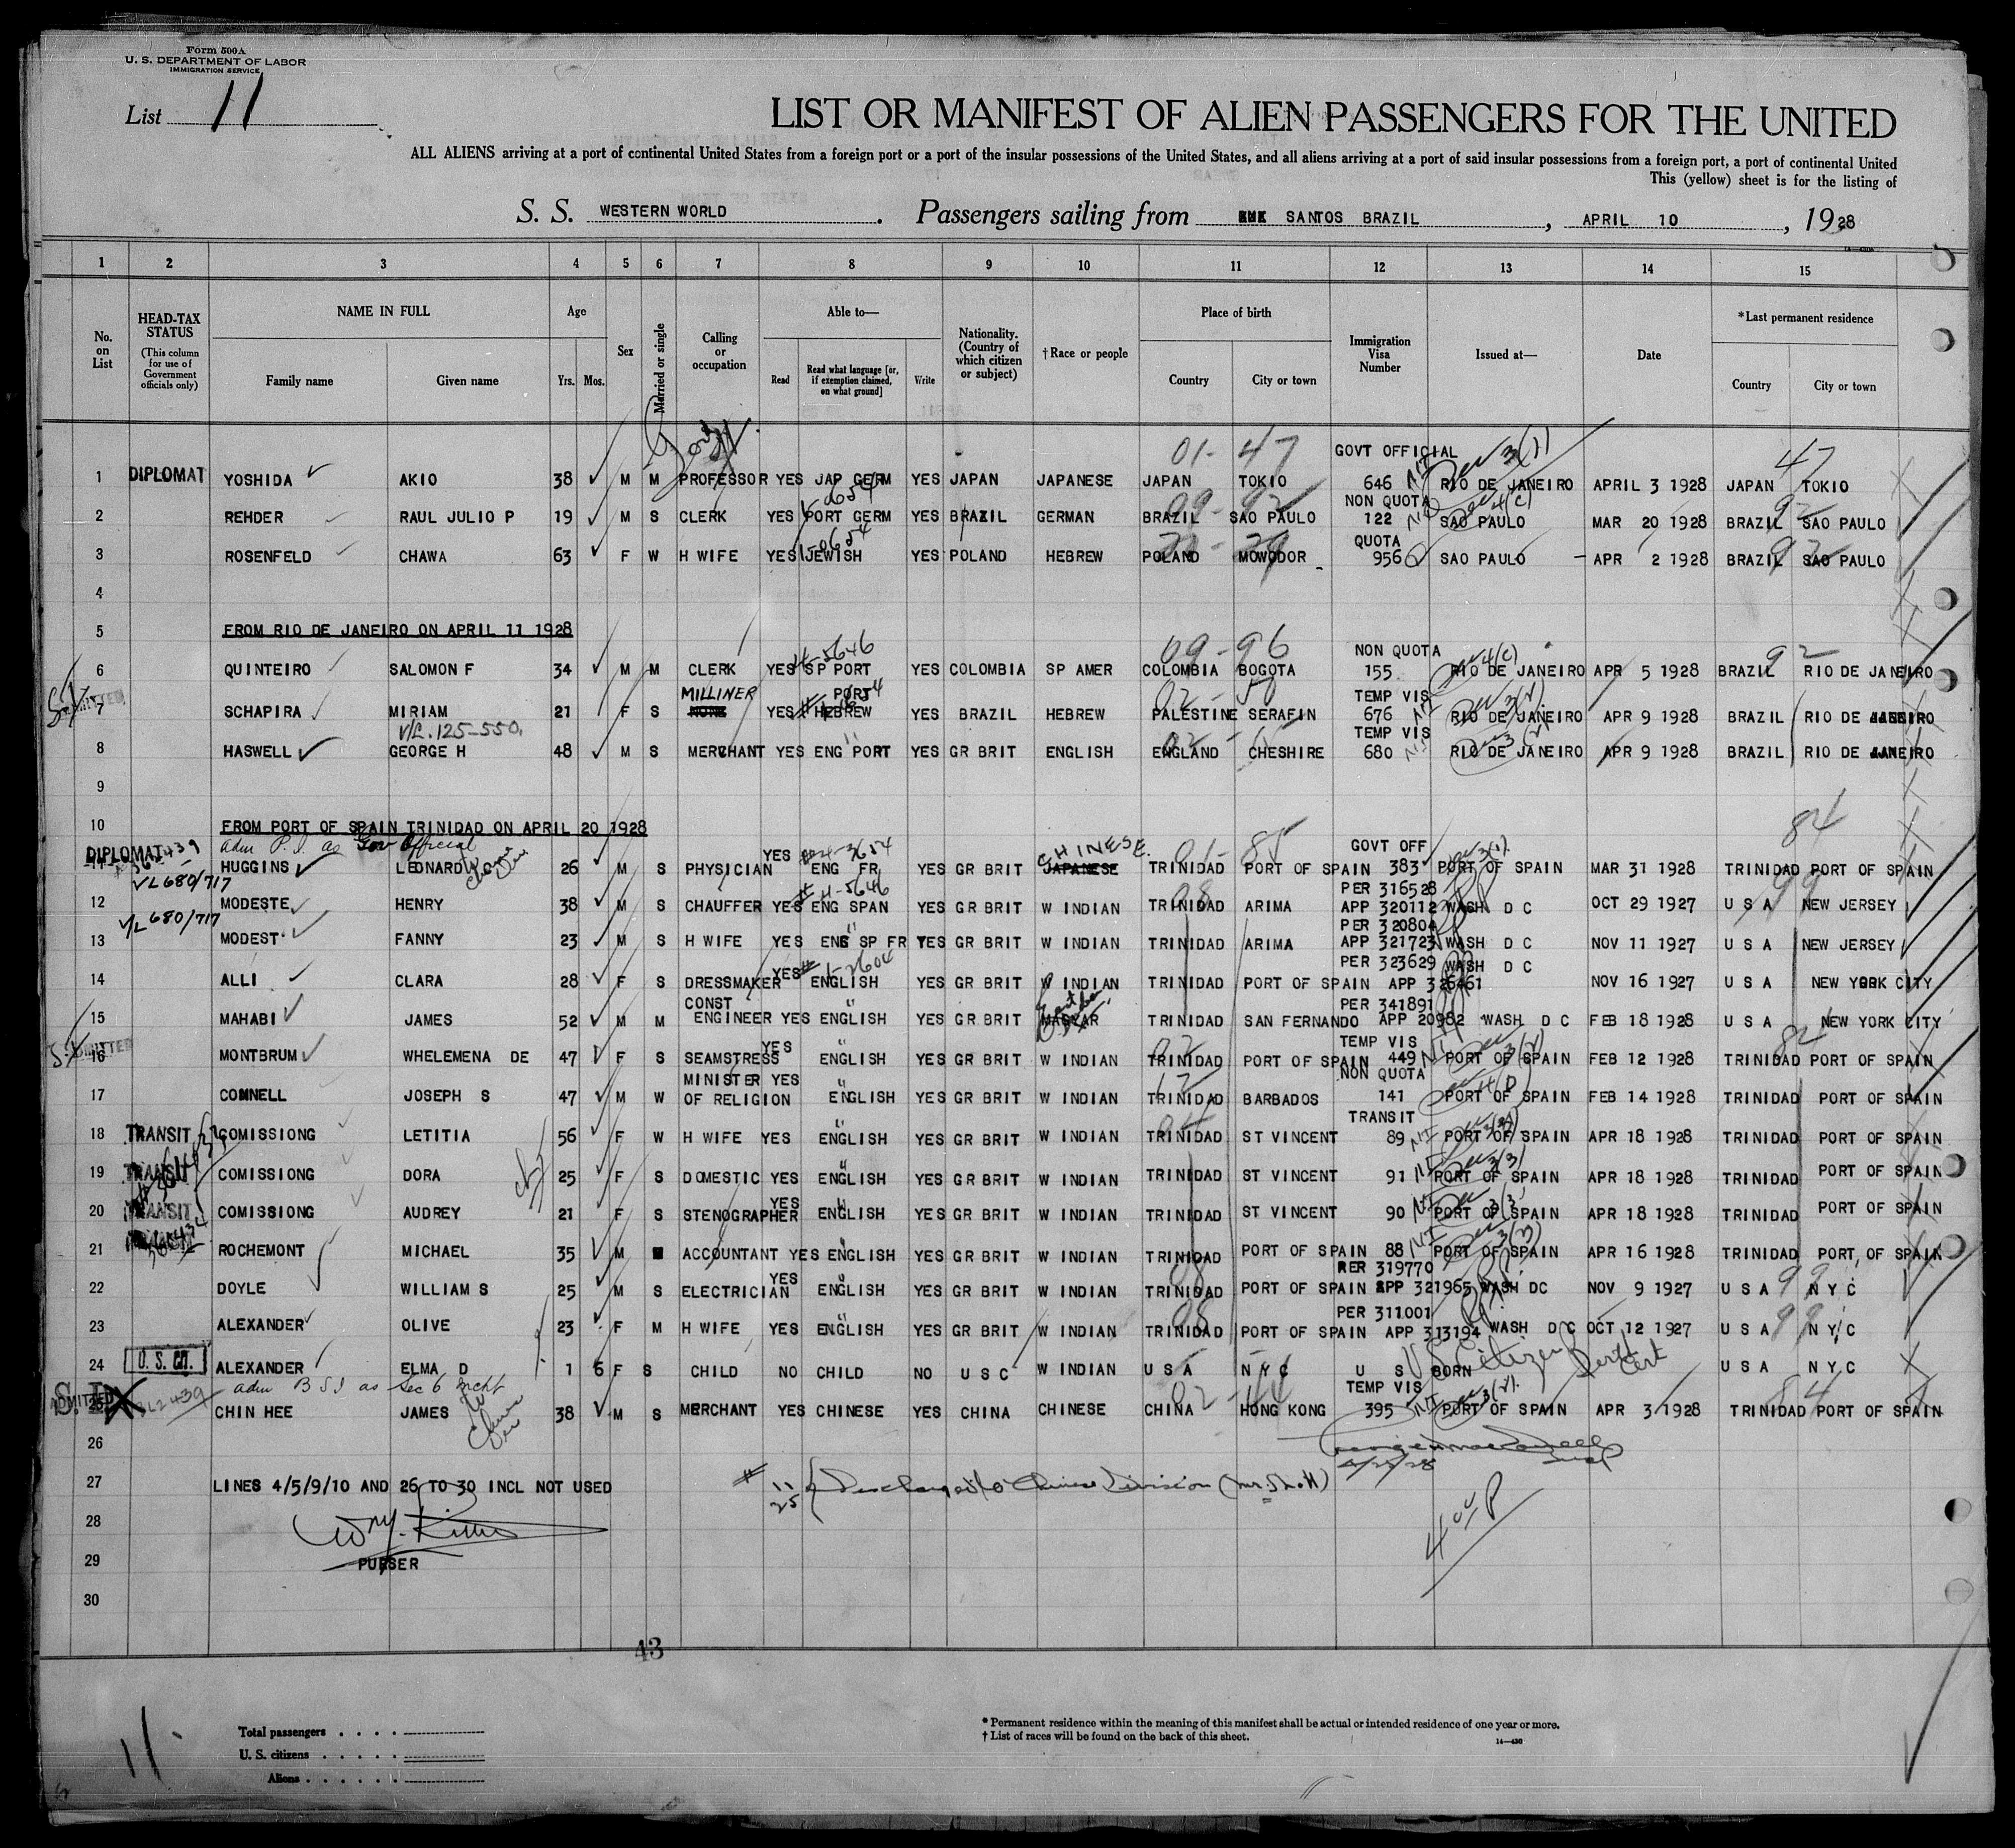 Form 500A
U. S. DEPARTMENT OF LABOR
IMMIGRATION SERVICE
List 11
LIST OR MANIFEST OF ALIEN PASSENGERS FOR THE UNITED
ALL ALIENS arriving at a port of continental United States from a foreign port or a port of the insular possessions of the United States, and all aliens arriving at a port of said insular possessions from a foreign port, a port of continental United
This (yellow) sheet is for the listing of
S. S. WESTERN WORLD . Passengers sailing from SANTOS BRAZIL , APRIL 10 , 1928
1 2 3 4 5 6 7 8 9 10 11 12 13 14 15
No. on List
HEAD-TAX STATUS
(This column for use of Government officials only)
NAME IN FULL
Family name Given name
Age
Yrs. Mos.
Sex
Married or single
Calling or occupation
Able to—
Read
Read what language [or, if exemption claimed, on what ground]
Write
Nationality. (Country of which citizen or subject)
†Race or people
Place of birth
Country City or town
Immigration Visa Number
Issued at—
Date
*Last permanent residence
Country City or town
01-47 GOVT OFFICIAL 47
1 DIPLOMAT YOSHIDA AKIO 38 M M PROFESSOR YES JAP GERM YES JAPAN JAPANESE JAPAN TOKIO 646 RIO DE JANEIRO APRIL 3 1928 JAPAN TOKIO
NON QUOTA
2 REHDER RAUL JULIO P 19 M S CLERK YES PORT GERM YES BRAZIL GERMAN BRAZIL SAO PAULO 122 SAO PAULO MAR 20 1928 BRAZIL SAO PAULO
QUOTA
3 ROSENFELD CHAWA 63 F W H WIFE YES JEWISH YES POLAND HEBREW POLAND MOWODOR 956 SAO PAULO APR 2 1928 BRAZIL SAO PAULO
4
5 FROM RIO DE JANEIRO ON APRIL 11 1928
09-96 NON QUOTA
6 QUINTEIRO SALOMON F 34 M M CLERK YES SP PORT YES COLOMBIA SP AMER COLOMBIA BOGOTA 155 RIO DE JANEIRO APR 5 1928 BRAZIL RIO DE JANEIRO
MILLINER PORT TEMP VIS
7 SCHAPIRA MIRIAM 21 F S NONE YES HEBREW YES BRAZIL HEBREW PALESTINE SERAFIN 676 RIO DE JANEIRO APR 9 1928 BRAZIL RIO DE JANEIRO
V/L. 125-550. TEMP VIS
8 HASWELL GEORGE H 48 M S MERCHANT YES ENG PORT YES GR BRIT ENGLISH ENGLAND CHESHIRE 680 RIO DE JANEIRO APR 9 1928 BRAZIL RIO DE JANEIRO
9
10 FROM PORT OF SPAIN TRINIDAD ON APRIL 20 1928
adm P.I. as Gov Official CHINESE. GOVT OFF 84
11 DIPLOMAT HUGGINS LEONARD 26 M S PHYSICIAN YES ENG FR YES GR BRIT JAPANESE TRINIDAD PORT OF SPAIN 383 PORT OF SPAIN MAR 31 1928 TRINIDAD PORT OF SPAIN
V/L 680/717 PER 316528
12 MODESTE HENRY 38 M S CHAUFFER YES ENG SPAN YES GR BRIT W INDIAN TRINIDAD ARIMA APP 320112 WASH D C OCT 29 1927 U S A NEW JERSEY
V/L 680/717 PER 320804
13 MODEST FANNY 23 M S H WIFE YES ENG SP FR YES GR BRIT W INDIAN TRINIDAD ARIMA APP 321723 WASH D C NOV 11 1927 U S A NEW JERSEY
PER 323629 WASH D C
14 ALLI CLARA 28 F S DRESSMAKER YES ENGLISH YES GR BRIT W INDIAN TRINIDAD PORT OF SPAIN APP 326461 NOV 16 1927 U S A NEW YORK CITY
CONST PER 341891
15 MAHABI JAMES 52 M M ENGINEER YES ENGLISH YES GR BRIT MAGYAR TRINIDAD SAN FERNANDO APP 20982 WASH D C FEB 18 1928 U S A NEW YORK CITY
TEMP VIS
16 MONTBRUM WHELEMENA DE 47 F S SEAMSTRESS YES ENGLISH YES GR BRIT W INDIAN TRINIDAD PORT OF SPAIN 449 PORT OF SPAIN FEB 12 1928 TRINIDAD PORT OF SPAIN
MINISTER YES NON QUOTA
17 COMNELL JOSEPH S 47 M W OF RELIGION ENGLISH YES GR BRIT W INDIAN TRINIDAD BARBADOS 141 PORT OF SPAIN FEB 14 1928 TRINIDAD PORT OF SPAIN
TRANSIT
18 TRANSIT COMISSIONG LETITIA 56 F W H WIFE YES ENGLISH YES GR BRIT W INDIAN TRINIDAD ST VINCENT 89 PORT OF SPAIN APR 18 1928 TRINIDAD PORT OF SPAIN
19 TRANSIT COMISSIONG DORA 25 F S DOMESTIC YES ENGLISH YES GR BRIT W INDIAN TRINIDAD ST VINCENT 91 PORT OF SPAIN APR 18 1928 TRINIDAD PORT OF SPAIN
20 TRANSIT COMISSIONG AUDREY 21 F S STENOGRAPHER YES ENGLISH YES GR BRIT W INDIAN TRINIDAD ST VINCENT 90 PORT OF SPAIN APR 18 1928 TRINIDAD PORT OF SPAIN
21 ROCHEMONT MICHAEL 35 M ACCOUNTANT YES ENGLISH YES GR BRIT W INDIAN TRINIDAD PORT OF SPAIN 88 PORT OF SPAIN APR 16 1928 TRINIDAD PORT OF SPAIN
PER 319770
22 DOYLE WILLIAM S 25 M S ELECTRICIAN YES ENGLISH YES GR BRIT W INDIAN TRINIDAD PORT OF SPAIN APP 321965 WASH DC NOV 9 1927 U S A N Y C
PER 311001
23 ALEXANDER OLIVE 23 F M H WIFE YES ENGLISH YES GR BRIT W INDIAN TRINIDAD PORT OF SPAIN APP 313194 WASH D C OCT 12 1927 U S A N Y C
24 ALEXANDER ELMA D 1 6 F S CHILD NO CHILD NO U S C W INDIAN U S A N Y C U S BORN U S A N Y C
adm B S I as Sec 6 Mcht TEMP VIS
25 CHIN HEE JAMES 38 M S MERCHANT YES CHINESE YES CHINA CHINESE CHINA HONG KONG 395 PORT OF SPAIN APR 3 1928 TRINIDAD PORT OF SPAIN
26
27 LINES 4/5/9/10 AND 26 TO 30 INCL NOT USED
28
29 PURSER
30
43
11
Total passengers
U. S. citizens
Aliens
* Permanent residence within the meaning of this manifest shall be actual or intended residence of one year or more.
† List of races will be found on the back of this sheet.